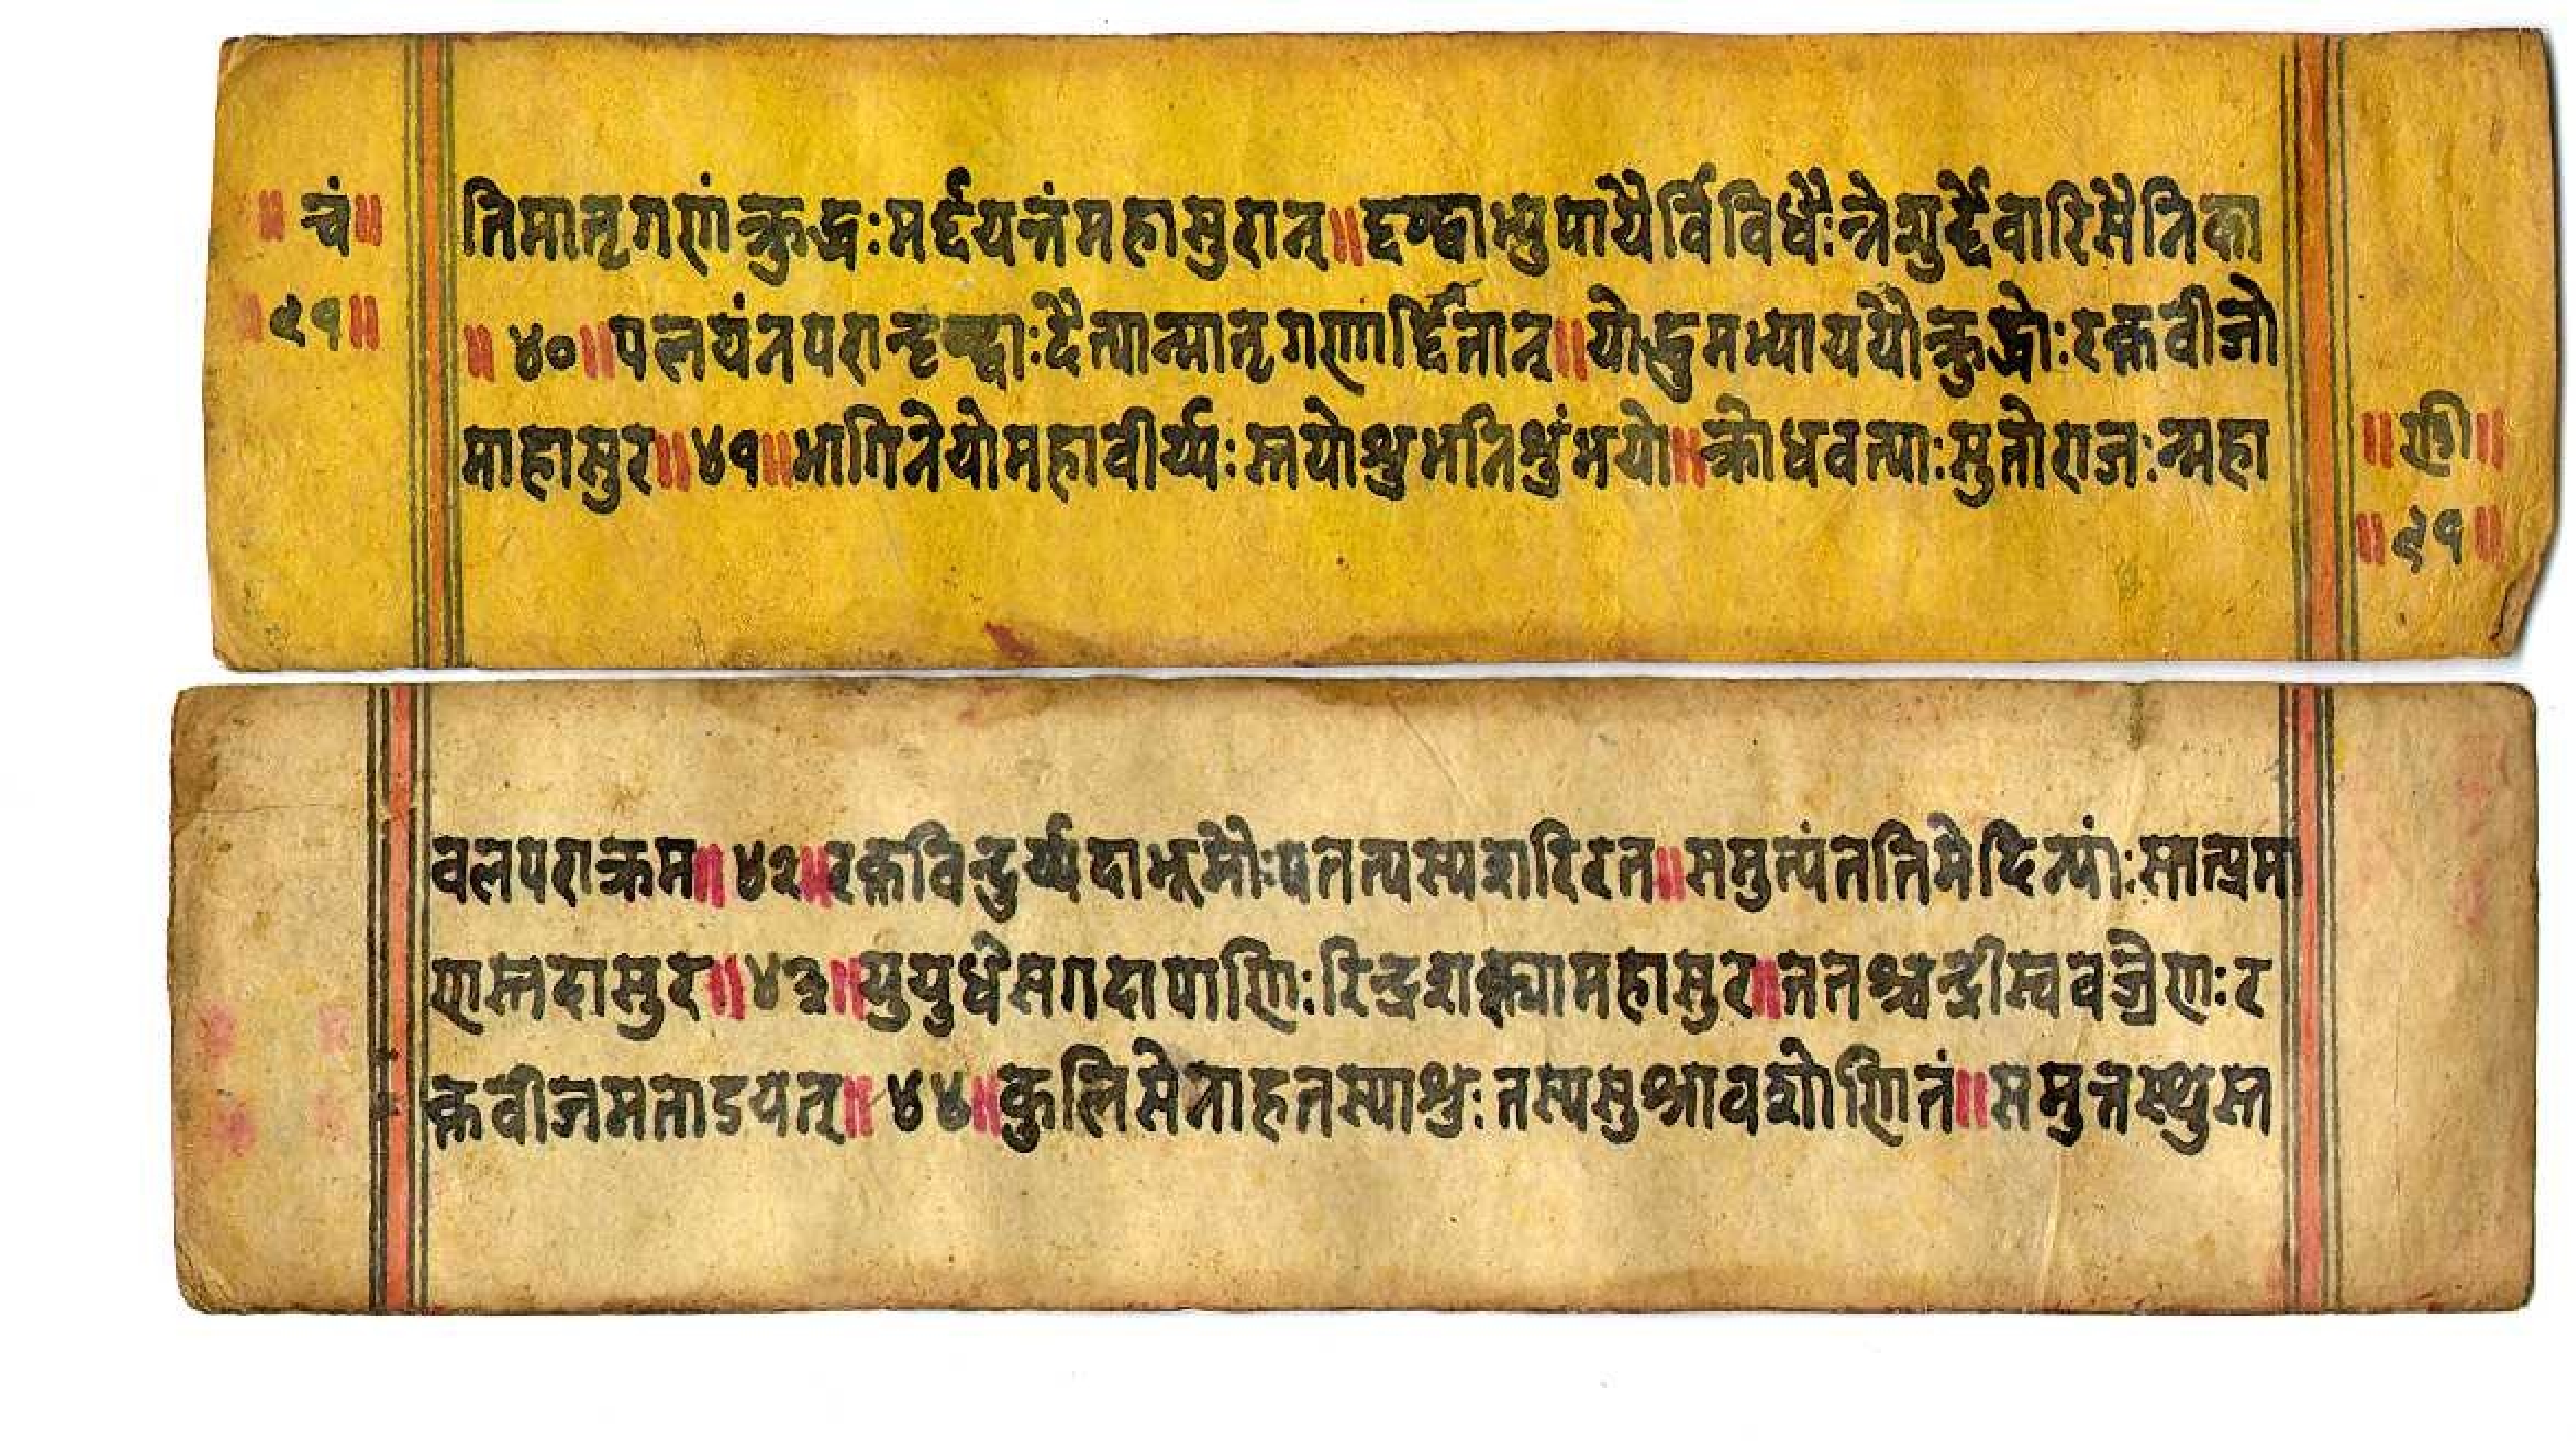 ॥ चं॥
॥९१॥
तिमातृगणं क्रुद्ध:मर्द्दयन्तंमहासुरान्॥दृष्ट्वाभ्युपायैर्विविधै:न्नेशुर्द्देवारिसैनिका
॥ ४०॥पलयंनपरान्दृष्ट्वा:दैत्यान्मातृगणार्द्दितान्॥योद्धुमभ्याययौक्रुद्धो:रक्तवीजो
माहासुर॥४१॥भागिनेयोमहावीर्य्य:स्तयोशुभनिशुंभयो॥क्रोधवत्या:सुतोराज:न्महा
॥ण्डी॥
॥९१॥
वलपराक्रम॥४२॥रक्तविन्दुर्य्यदाभूमौ:पतत्यस्यशरिरत॥समुत्पंततिमेदिन्यां:स्तत्प्रमा
णस्तदासुर॥४३॥युयुधेसगदापाणि:रिन्द्रशक्त्यामहासुर॥ततश्चन्द्रीस्ववज्रेण:र
क्तवीजमताडयत्॥ ४४॥कुलिसेनाहतस्याशु:तस्यसुश्रावशोणितं॥समुत्तस्थुस्त